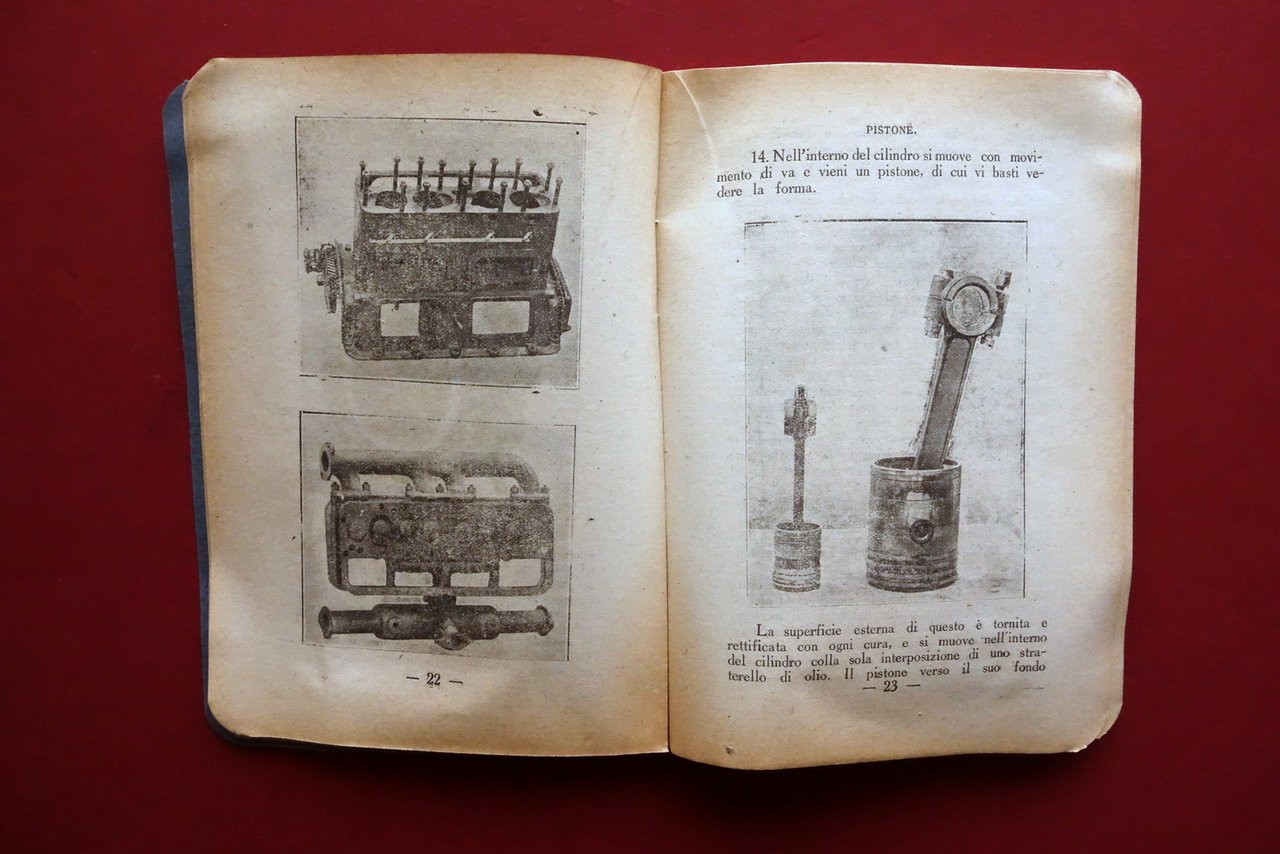 — 22 —
PISTONE.
14. Nell'interno del cilindro si muove con movi-
mento di va e vieni un pistone, di cui vi basti ve-
dere la forma.
La superficie esterna di questo è tornita e
rettificata con ogni cura, e si muove nell'interno
del cilindro colla sola interposizione di uno stra-
terello di olio. Il pistone verso il suo fondo
— 23 —